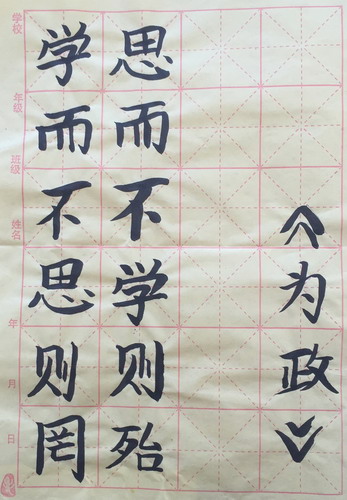 学校 年级 班级 姓名 年 月 日
学而不思则罔
思而不学则殆
《为政》